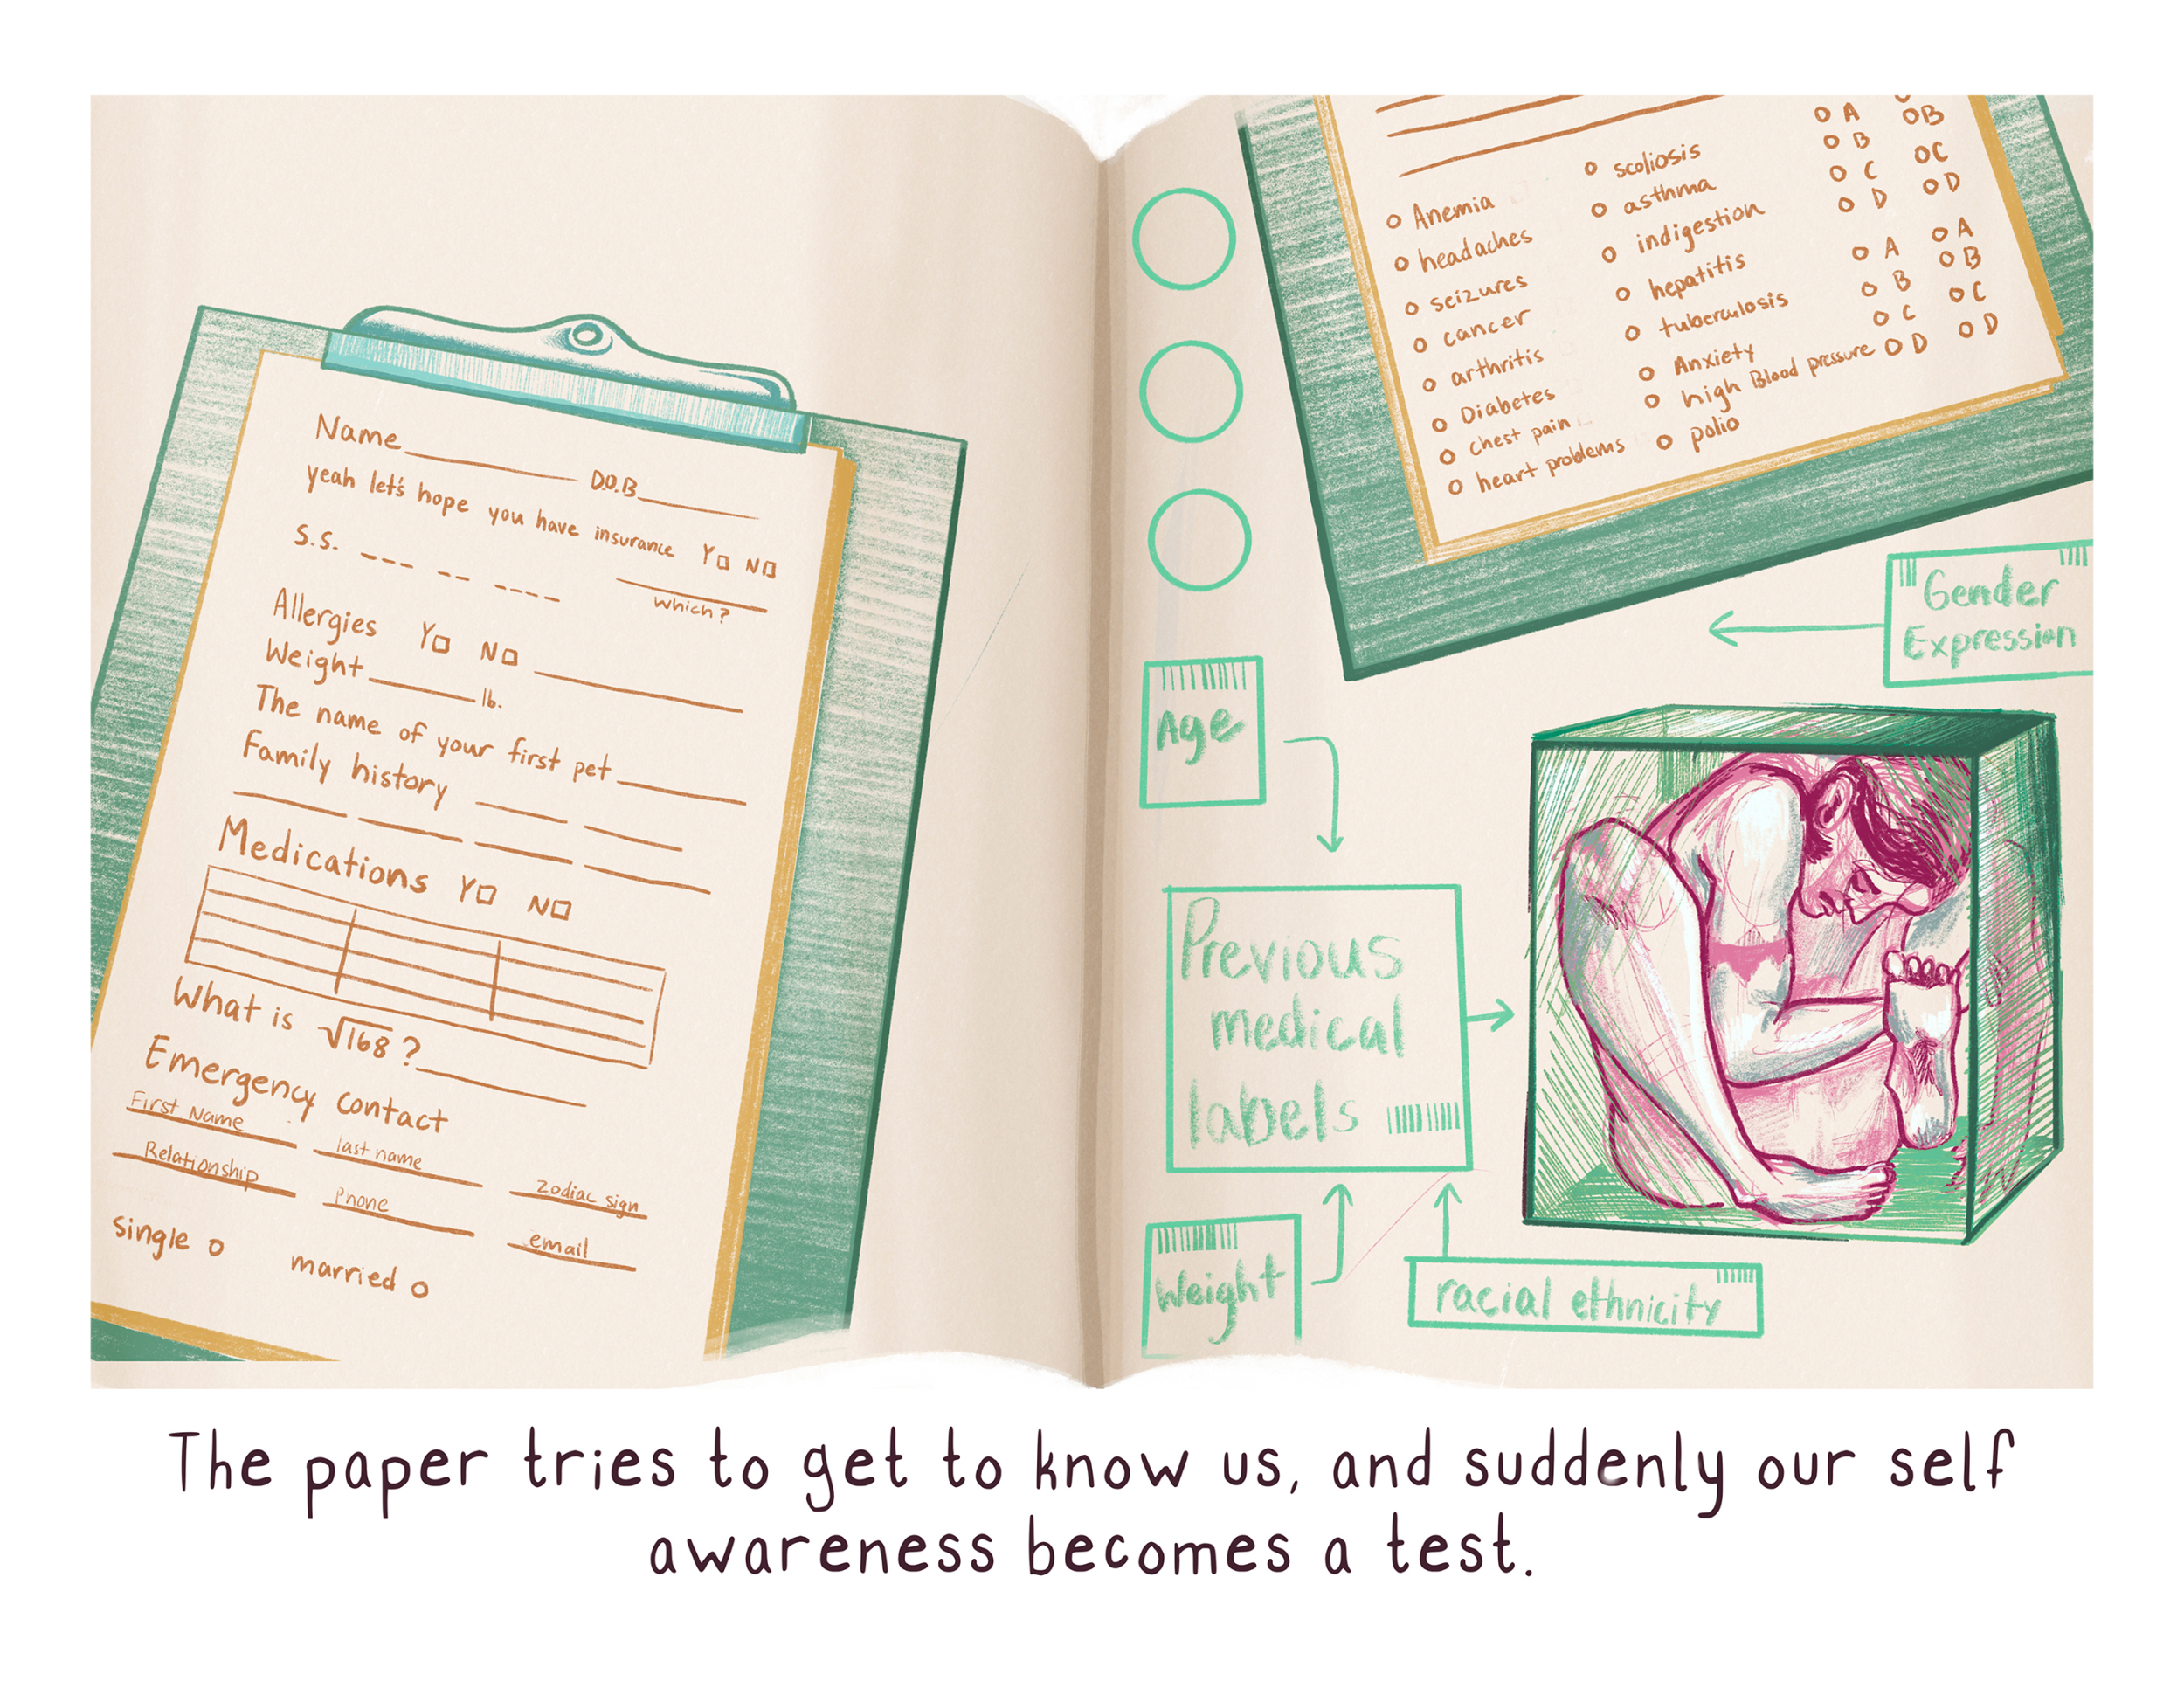 Name D.O.B
yeah let's hope you have insurance Y N
S.S.
which?
Allergies Y N
Weight lb.
The name of your first pet
Family history
Medications Y N
What is √168?
Emergency contact
First Name last name zodiac sign
Relationship phone email
single married
Anemia
headaches
seizures
cancer
arthritis
Diabetes
chest pain
heart problems
scoliosis
asthma
indigestion
hepatitis
tuberculosis
Anxiety
high Blood pressure
polio
A B
B C
C D
D
A A
B B
C C
D D
Gender
Expression
Age
Previous
medical
labels
Weight
racial ethnicity
The paper tries to get to know us, and suddenly our self
awareness becomes a test.